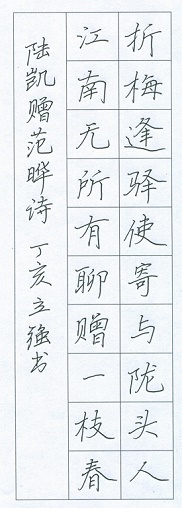 折梅逢驿使寄与陇头人
江南无所有聊赠一枝春
陆凯赠范晔诗 丁亥立强书